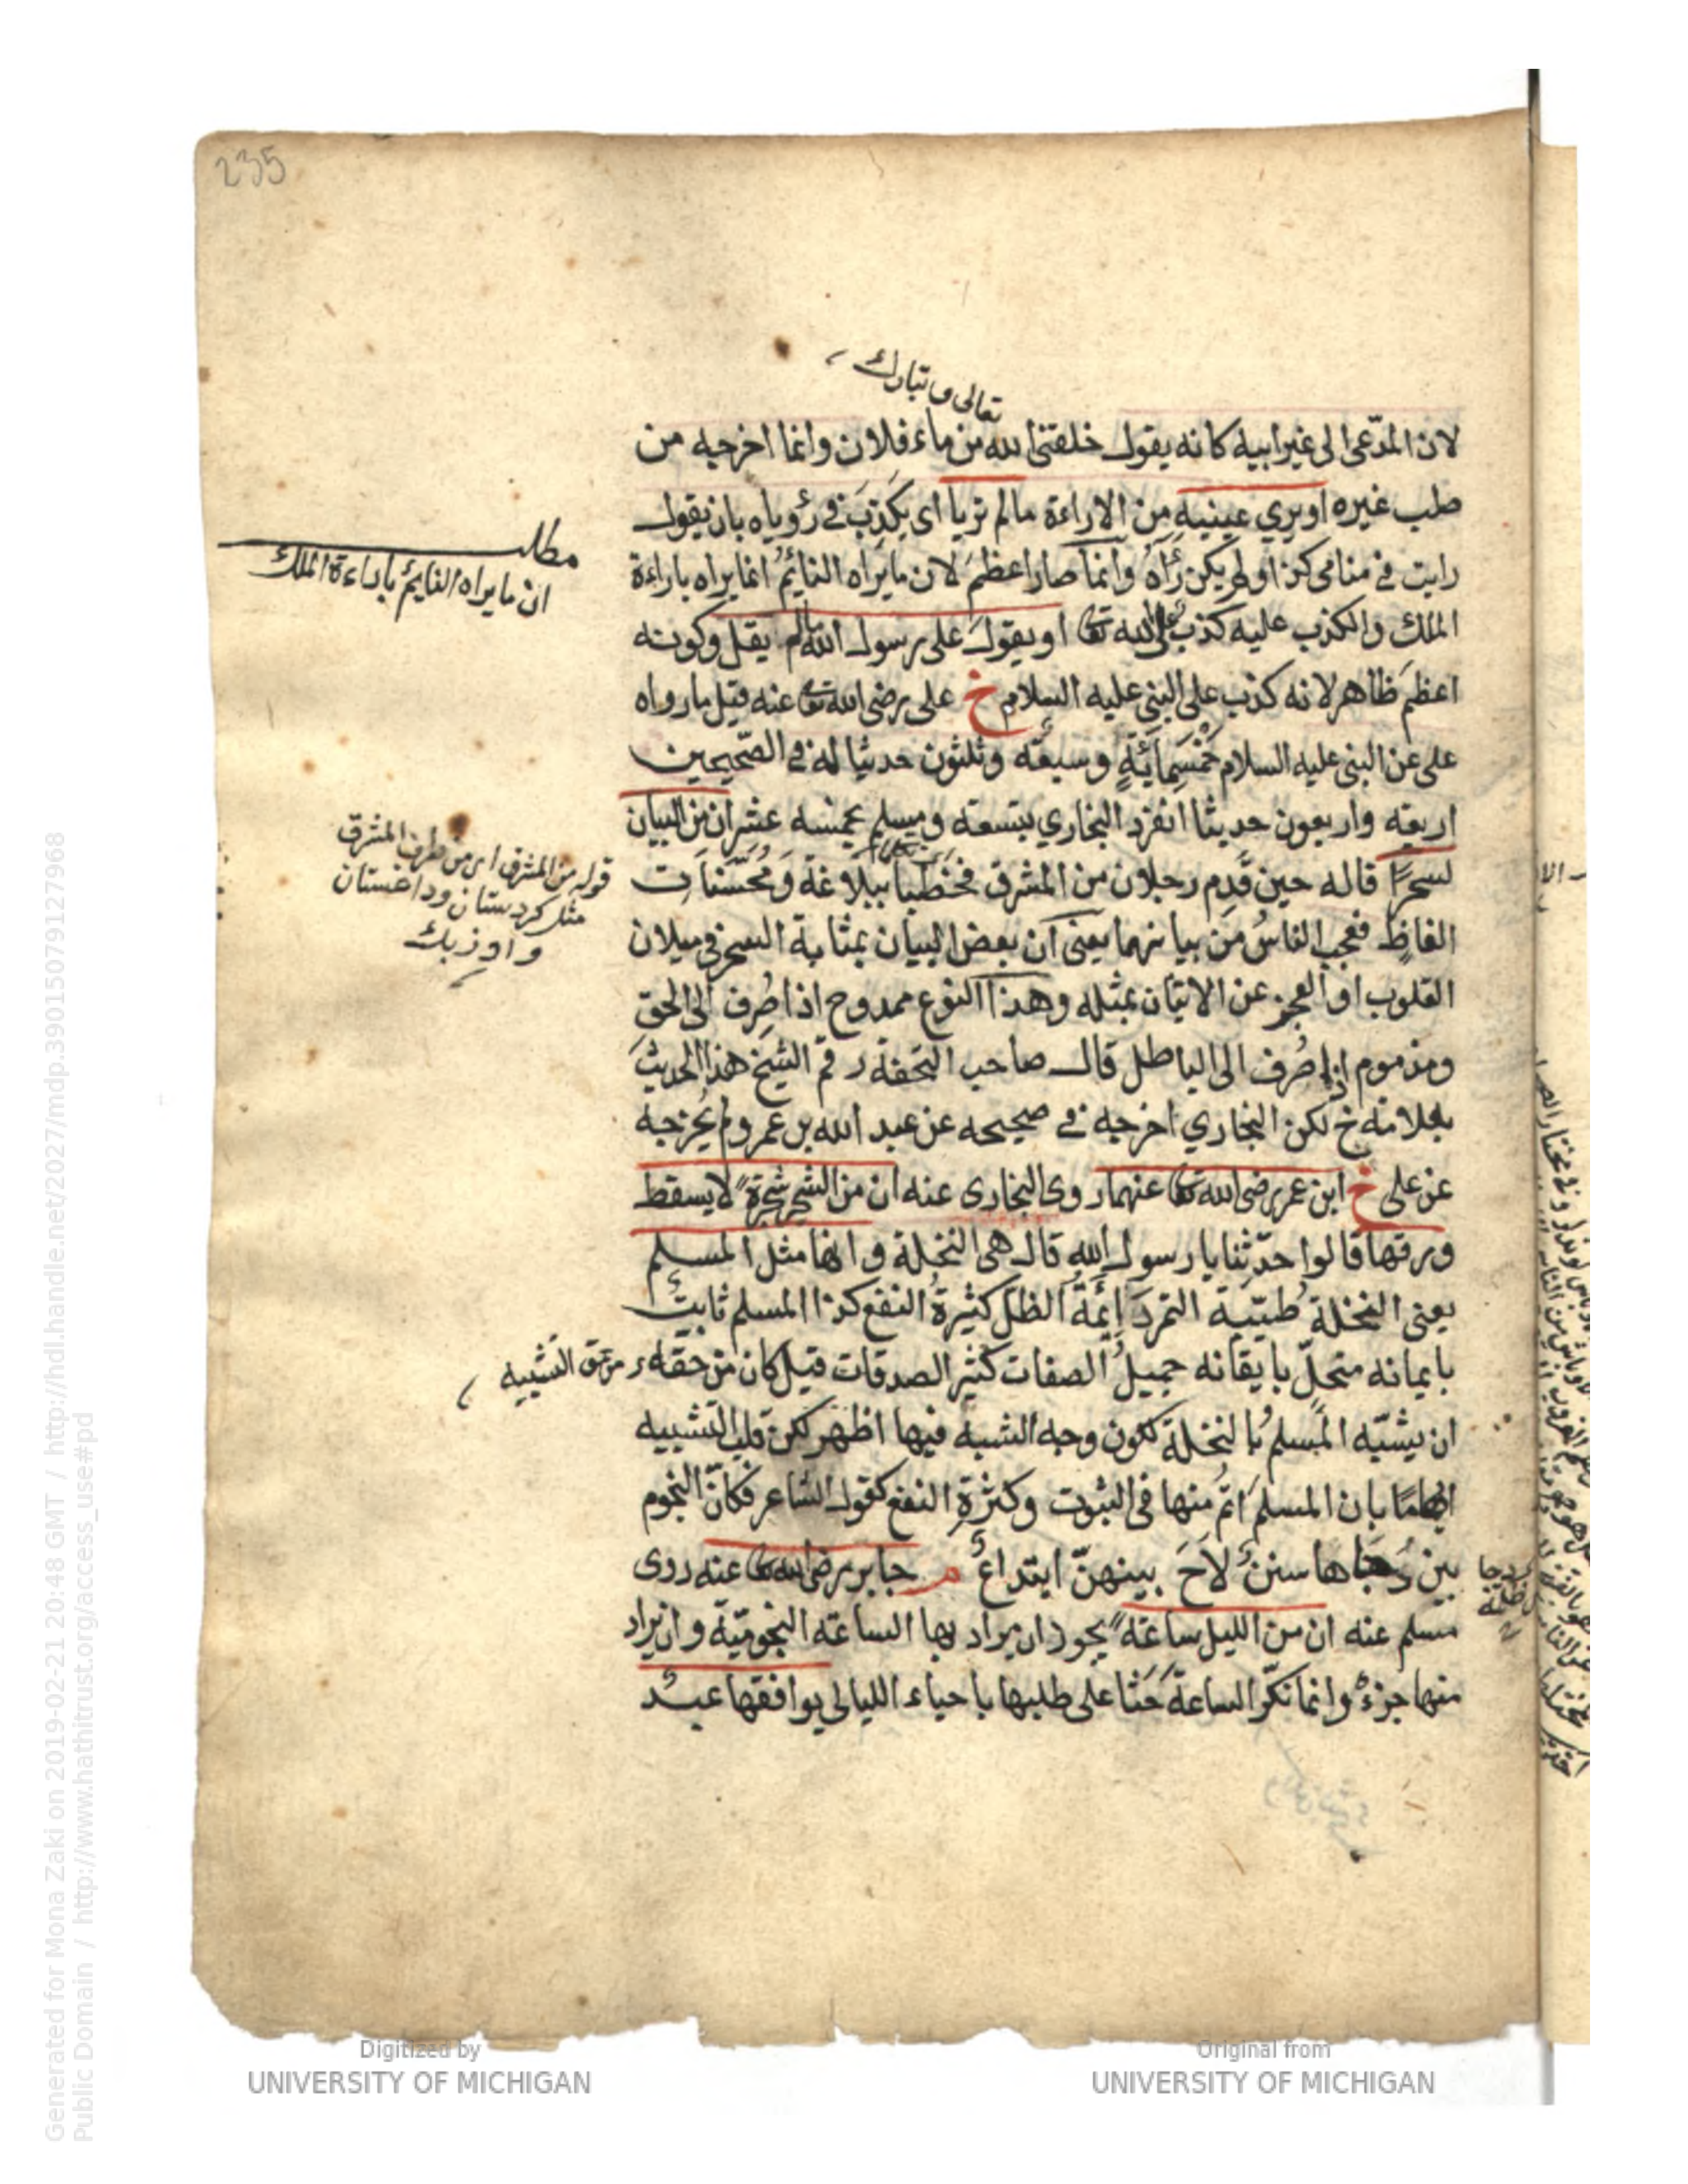 235
تعالى وتبارك
لان المدّعى الى غير ابيه كانه يقول خلقتنى الله من ماء فلان وانما اخرجه من
صلب غيره او يري عينيه من الاراءة مالم تريا اى يكذبَ فى رؤياه بان يقول
رايت فى منامى كذا ولم يكن رَأهُ وانما صار اعظمَ لان مايراه النائمُ انما يراه باراءة
الملك والكذب عليه كذب على الله تعا او يقولَ على رسول الله مالم يقل وكونه
اعظمَ ظاهر لانه كذب على النبى عليه السلام خ على رضى الله تعا عنه قيل مارواه
على عن النبى عليه السلام خَمْسَمِائَةٍ وسبعَه وثلثون حديثا له فى الصّحيحين
اربعة واربعون حديثا انفرد البخاري بتسعة ومسلم بخمسة عشر ان من البيان
لسحرًا قاله حين قَدِم رجلان من المشرق فخطبا ببلاغة وَمُحَسَّناتِ
الفاظٍ فعجب الناسُ من بيانهما يعنى ان بعض البيان بمثابة السحر فى ميلان
القلوب او العجز عن الاتيان بمثله وهذا النوع ممدوح اذا صُرف الى الحق
ومذموم اذا صُرف الى الباطل قال صاحب التحفة رقم الشيخ هذا الحديثَ
بعلامة خ لكن البخاري اخرجه فى صحيحه عن عبد الله بن عمر ولم يخرجه
عن على خ ابن عمر رضى الله تعا عنهما روى البخارى عنه ان من الشجر شجرةً لا يسقط
ورقها قالوا حدّثنا يا رسول الله قال هى النخلة وانها مثل المسلم
يعنى النخلة طيّبة التمر دَائِمَةُ الظل كثيرةُ النفع كذا المسلم ثابتٌ
بايمانه متحلّ بايقانه جميلُ الصفات كثير الصدقات قيل كان من حقه
ان يشبّه المسلمُ بالنخلة لكون وجه الشبه فيها اظهر لكن قلب التشبيه
ايهامًا بان المسلمَ اتمُّ منها فى الثبوت وكثرةِ النفع كقول الشاعر فكانّ النجوم
بين دُجاها سننٌ لاَحَ بينهنّ ابتداعٌ م جابر رضى الله تعا عنه روى
مسلم عنه ان من الليل ساعةً يجوز ان يراد بها الساعة النجوميّة وان يراد
منها جزءٌ وانما نكّر الساعةَ حَثّا على طلبها باحياء الليالى يوافقها عبدٌ
مطلب
ان ما يراه النايم باراءة الملك
قوله من المشرق اى من طرف المشرق
مثل كردستان وداغستان
واوزبك
من حق التشبيه
Generated for Mona Zaki on 2019-02-21 20:48 GMT / http://hdl.handle.net/2027/mdp.39015079127968
Public Domain / http://www.hathitrust.org/access_use#pd
Digitized by
UNIVERSITY OF MICHIGAN
Original from
UNIVERSITY OF MICHIGAN